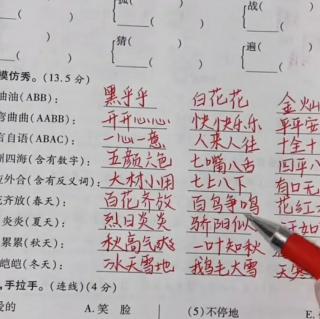 孤(
战(
猜(
遍(
模仿秀。(13.5分)
油油(ABB): 黑乎乎 白花花 金灿
弯曲曲(AABB): 开开心心 快快乐乐 平平安
言自语(ABAC): 一心一意 人来人往 十全十
洲四海(含有数字): 五颜六色 七嘴八舌 四平八
应外合(含有反义词): 大材小用 七上八下 有口无
花齐放(春天): 百花齐放 百鸟争鸣 花红
炎炎(夏天): 烈日炎炎 骄阳似 如
累累(秋天): 秋高气爽 一叶知秋
皑皑(冬天): 冰天雪地 鹅毛大雪 天寒
,手拉手。(连线)(4分)
爱的 A.笑 脸 (5)不停地 E.